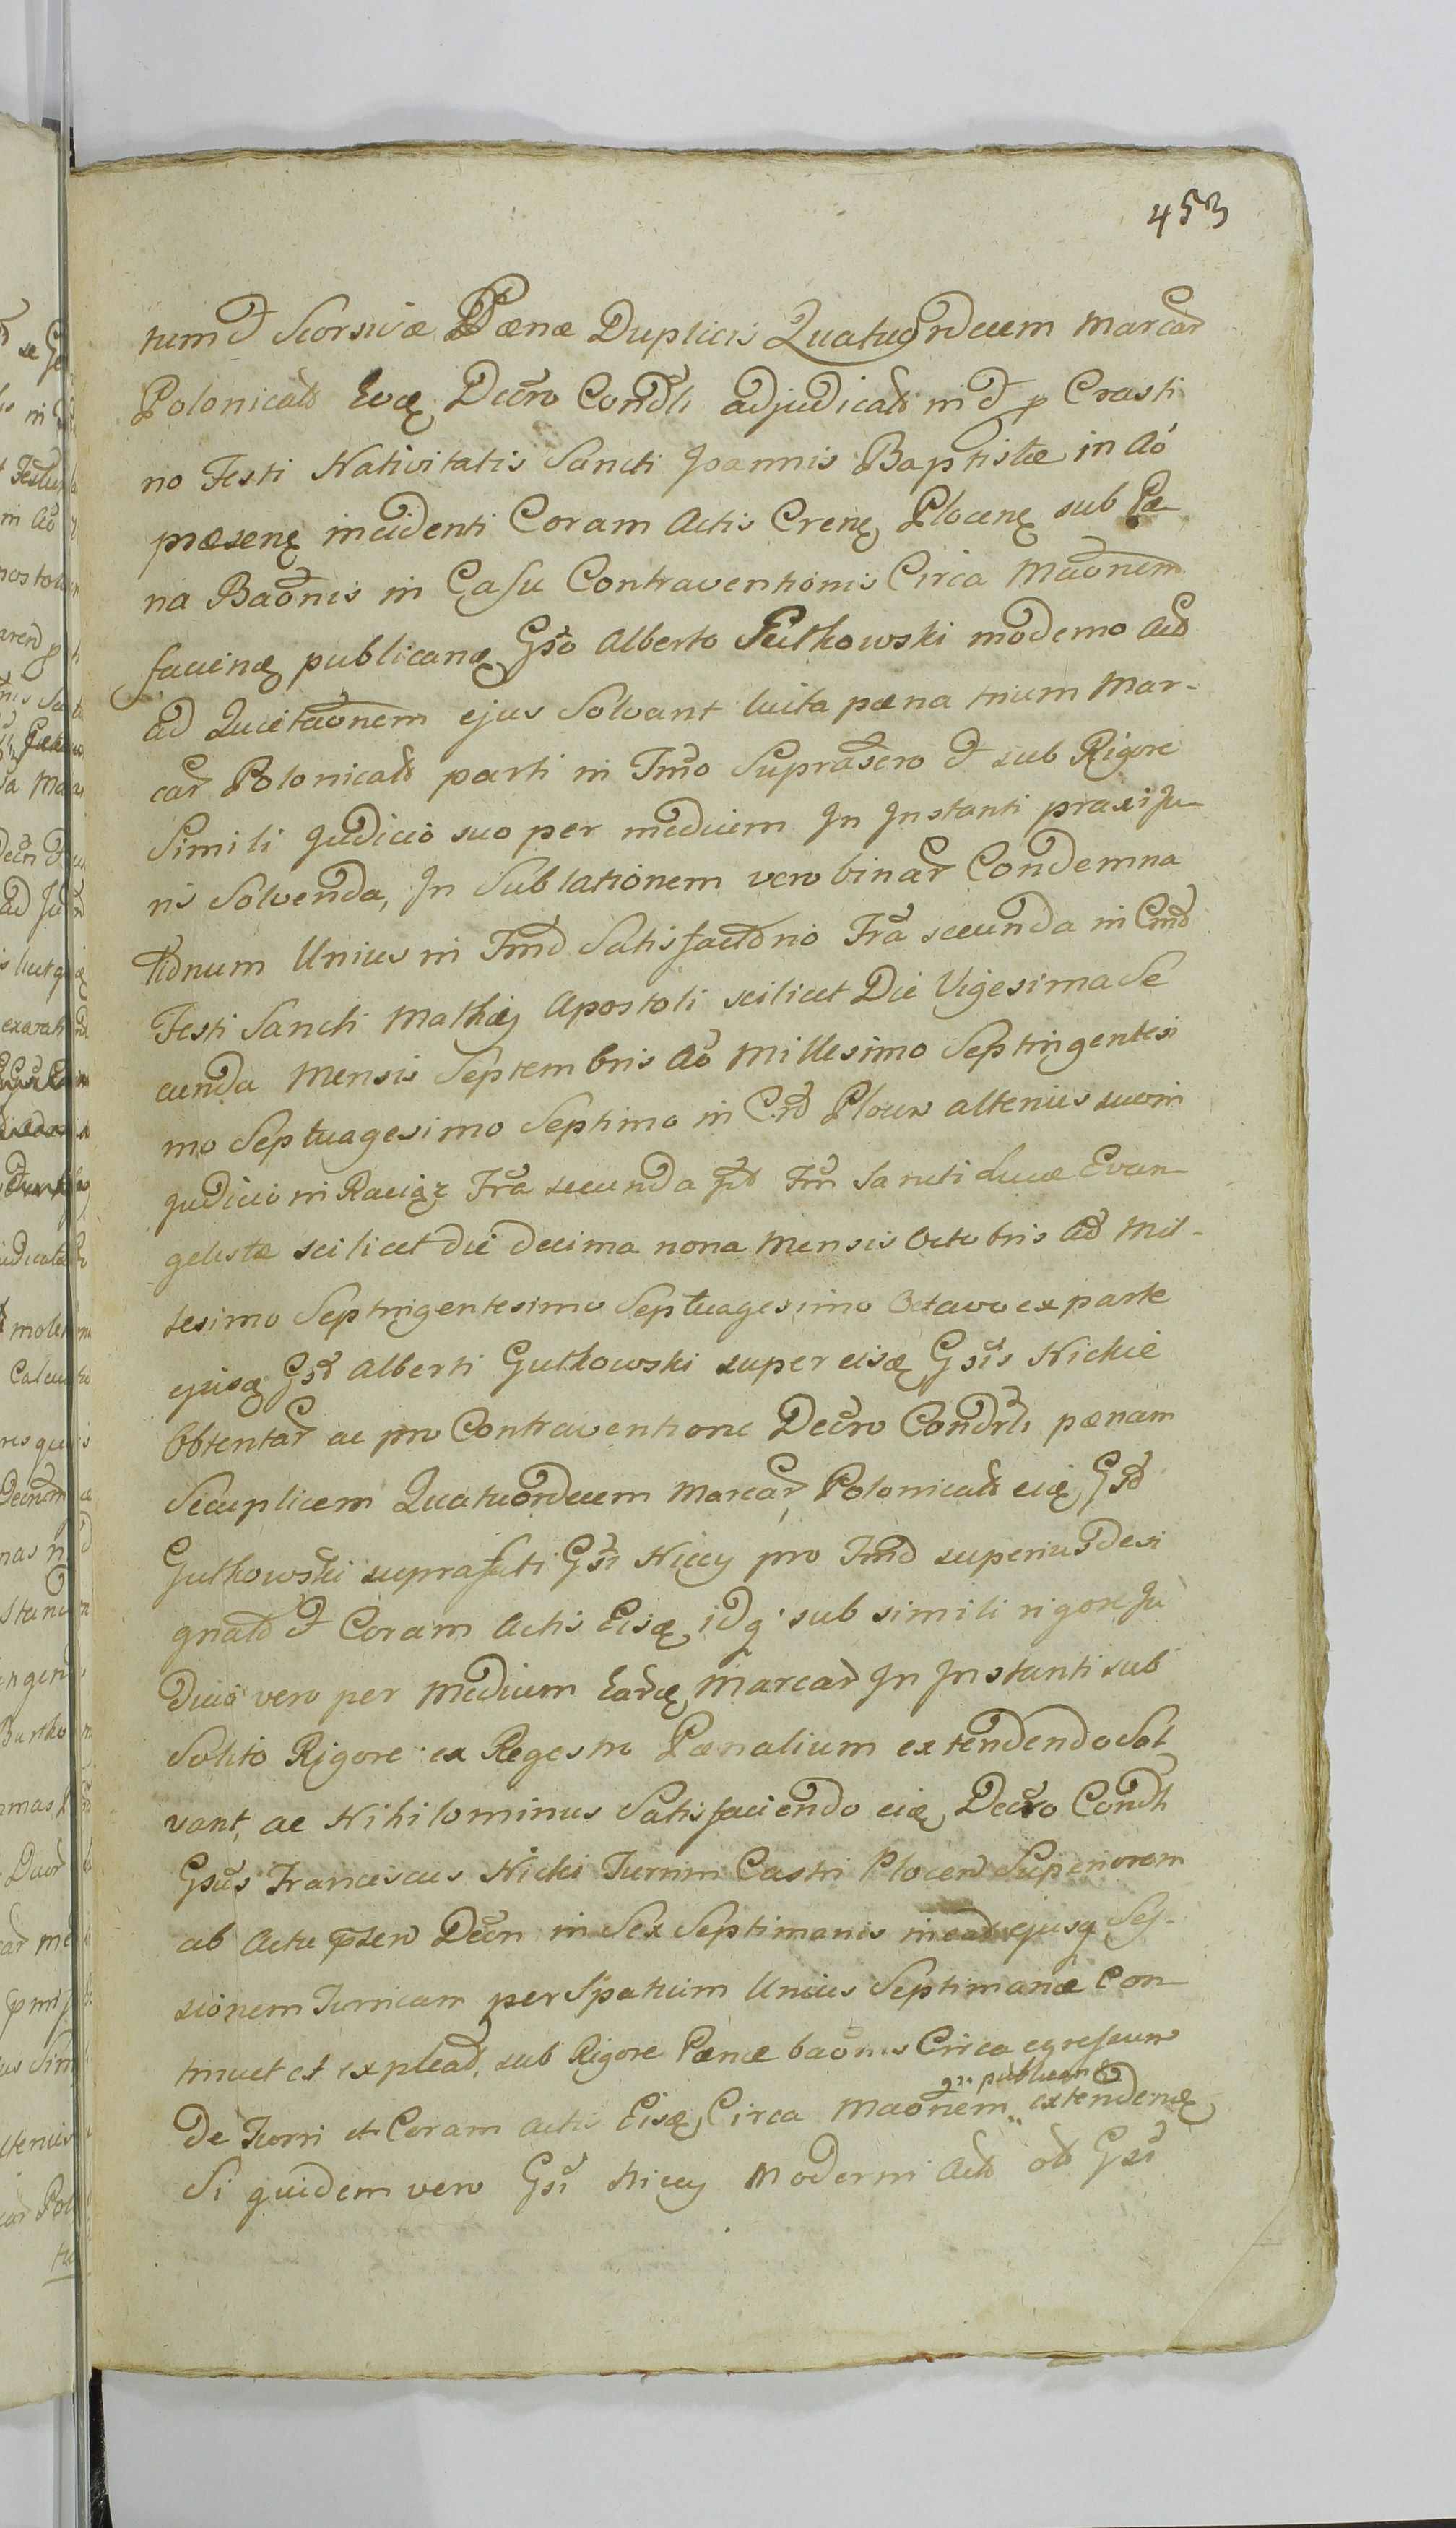 453
tum et Seorsivæ Pænæ Duplicis Quatuordecem Marcar
Polonicals Eoq Decro Condli adjudicals in d p Crasti
no Festi Nativitatis Sancti Joannis Baptistæ in Ao
præsenę incidenti Coram Actis Crenę Plocenę sub Pæ
na Baonis in Casu Contraventionis Circa Maonem
faciendę publicanę Gso Alberto Gutkowski moderno Act
ad Quietaonem ejus Solvant luita pæna trium Mar-
car Polonicals parti in Tmo Suprascro et sub Rigore
Simili Judicio suo per medium In Instanti praxi Ju
ris Solvenda, In Sublationem vero binar Condemna
tionum Unius in Tmo Satisfactorio Fra secunda in Cmo
Festi Sancti Mathæj Apostoli scilicet Die Vigesima Se
cunda Mensis Septembris Ao Millesimo Septingentesi
mo Septuagesimo Septimo in Crd Plocen alterius suo in
Judicio in Raciąż Fra secunda pt Fm Sancti Lucæ Evan
gelistæ scilicet die decima nona Mensis Octobris Ad Mil-
lesimo Septingentesimo Septuagesimo Octavo ex parte
ejusq Gsi Alberti Gutkowski super eisq Gsis Nickie
Obtentar ac pro Contraventione Decro Condrli pænam
Secuplicem Quatuordecem Marcar Polonicals eiq Gso
Gutkowski suprafati Gsi Niccy pro Tmo superius desi
gnato et Coram Actis Eisq idq sub simili rigore Ju
dicio vero per Medium Earq Marcar In Instanti sub
Solito Rigore ex Regestro Pænalium extendendo Sol
vant, ac Nihilominus Satisfaciendo eiq Decro Condli
Gsus Franciscus Nicki Turrim Castri Plocen Superiorem
ab Actu psen Decri in Sex Septimanis ineat ejusq Ses-
sionem Turricam per Spatium Unius Septimanæ Con
tinuet et expleat, sub Rigore Pænæ baonis Circa egressum
De Turri et Coram Actis Eisq Circa Maonem extendenę
publican
Si quidem vero Gsi Niccy Moderni Act ob Gsi